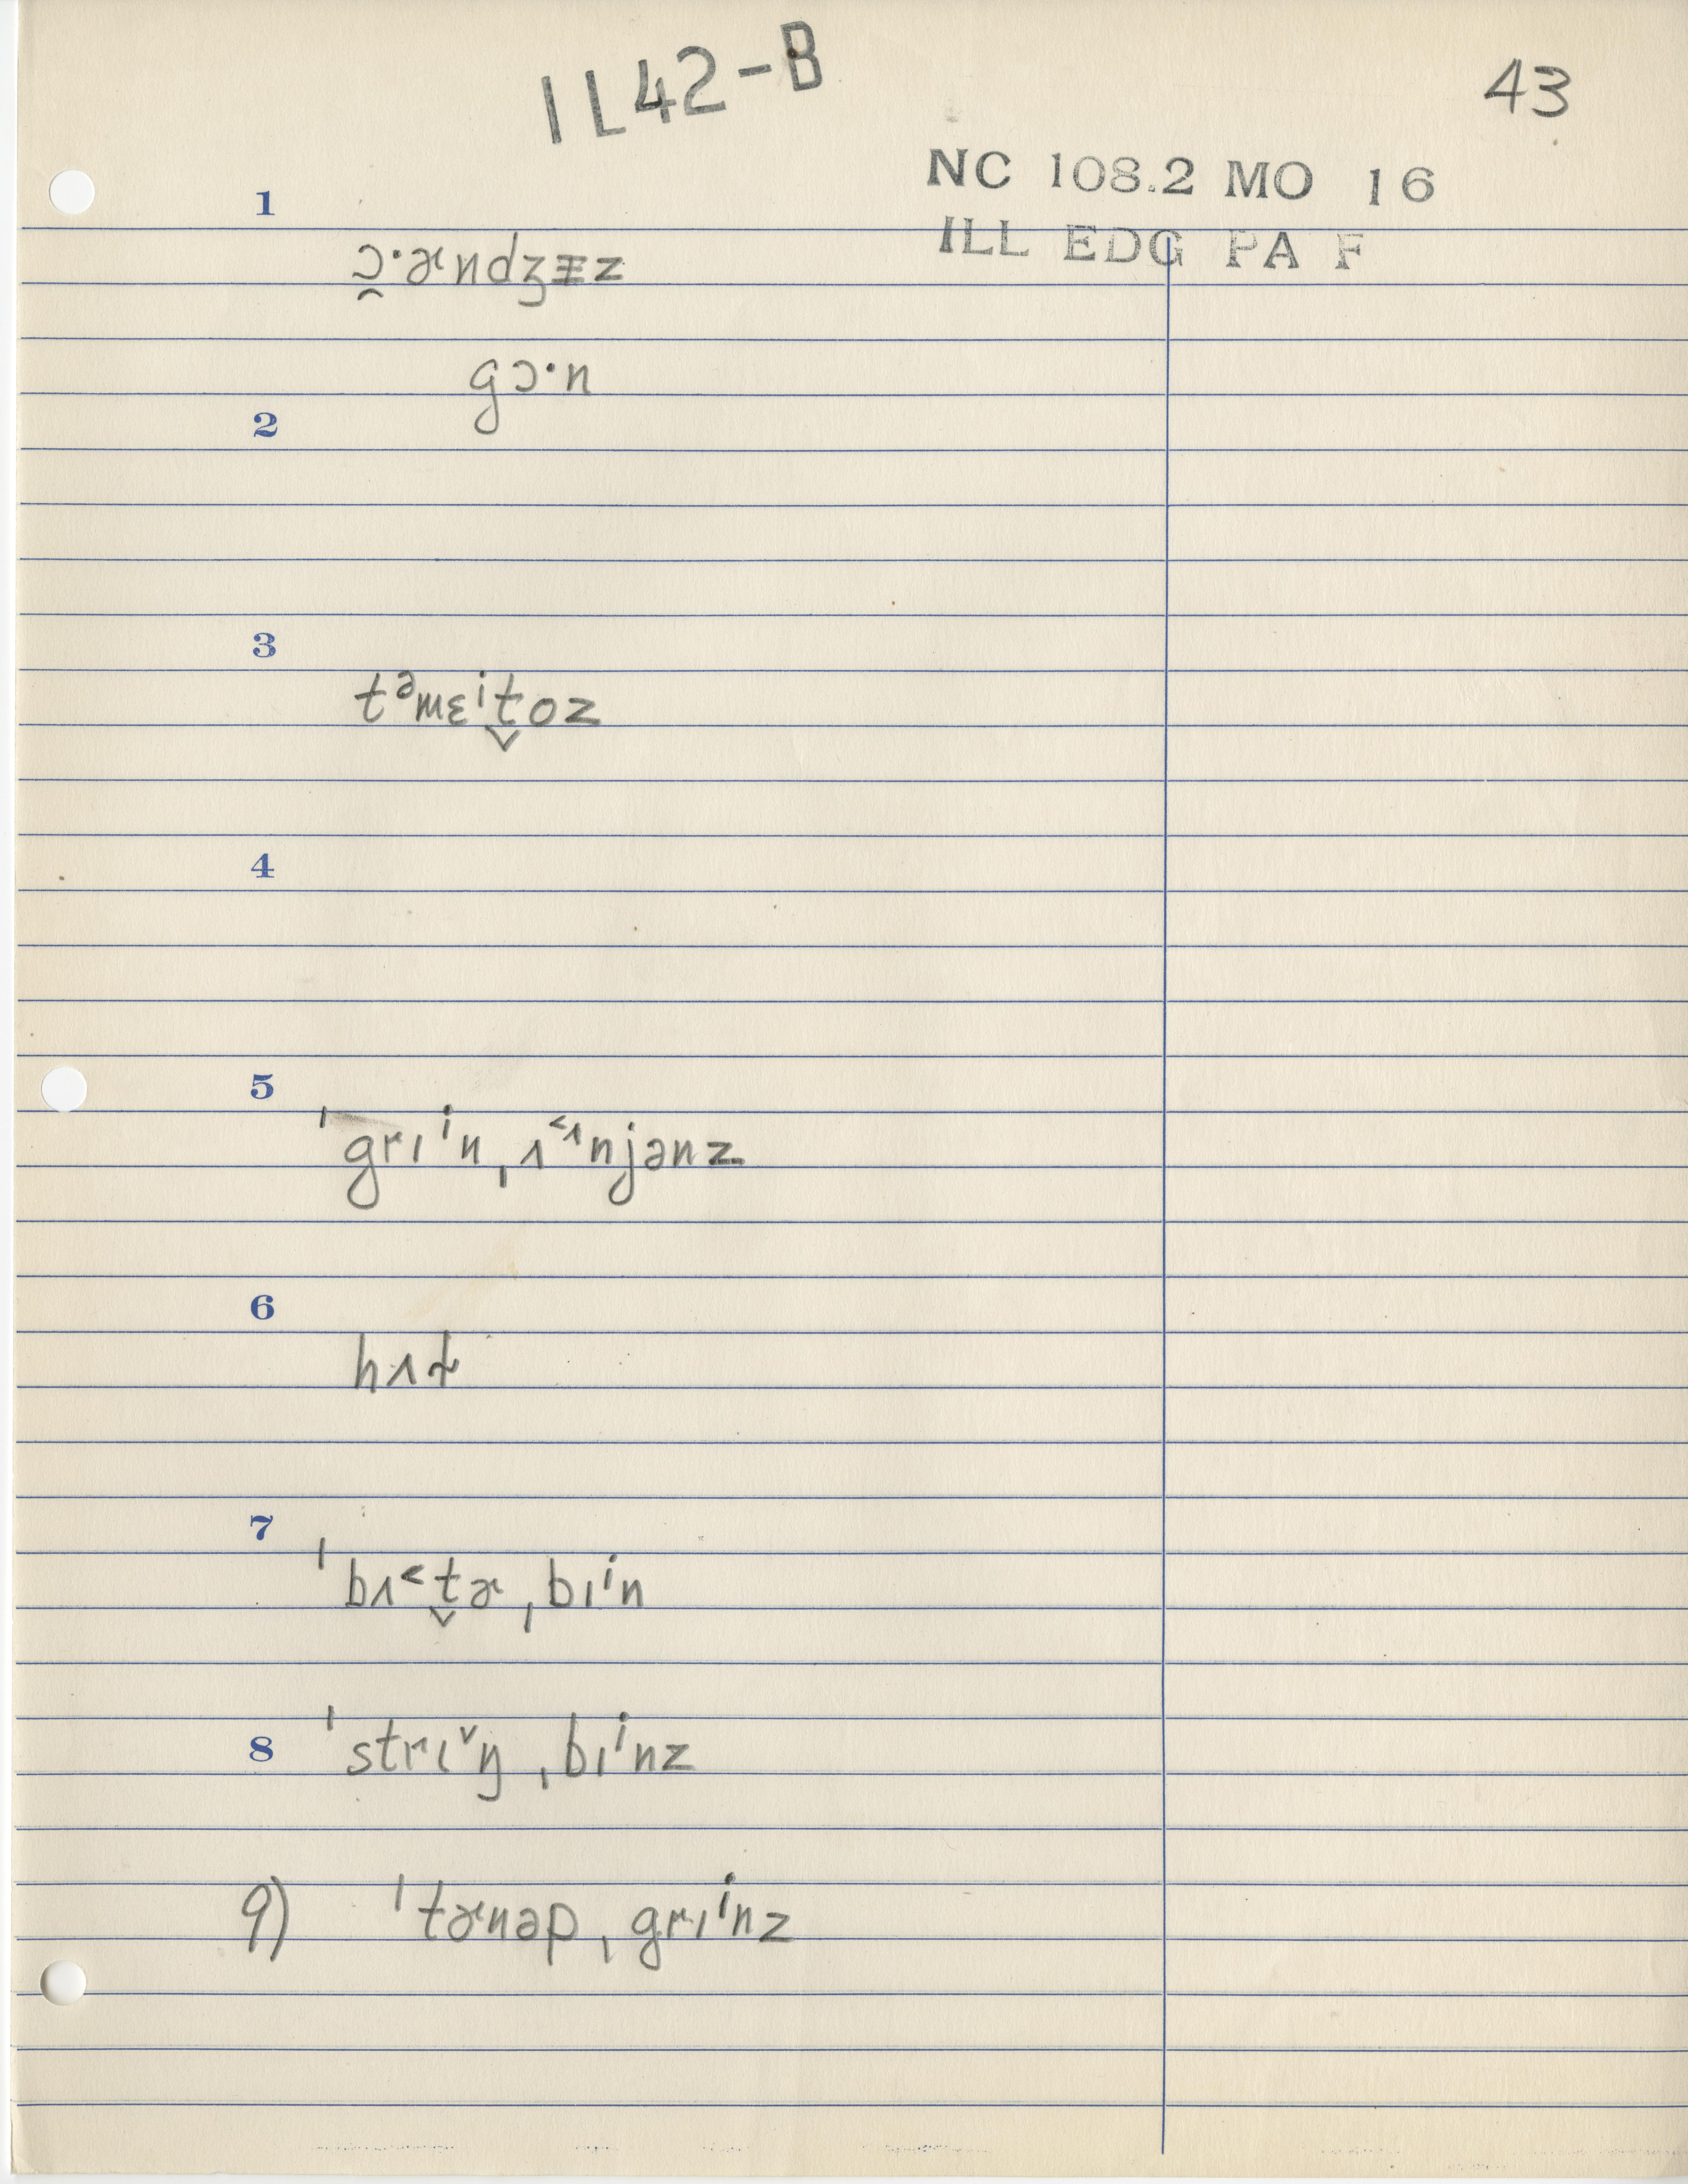 IL42-B
43
NC 108.2 MO 16
ILL EDG PA F
1
ɔ̯·ɚndʒɨz
gɔ·n
2
3
tᵊmɛⁱt̬oz
4
5
ˈgrɪⁱnˌʌ˂ᶺnjənz
6
hʌɫ
7
ˈbʌ˂t̬ɚˌbɪⁱn
8
ˈstrɪᵛŋˌbɪⁱnz
9) ˈtɚnəpˌgrɪⁱnz